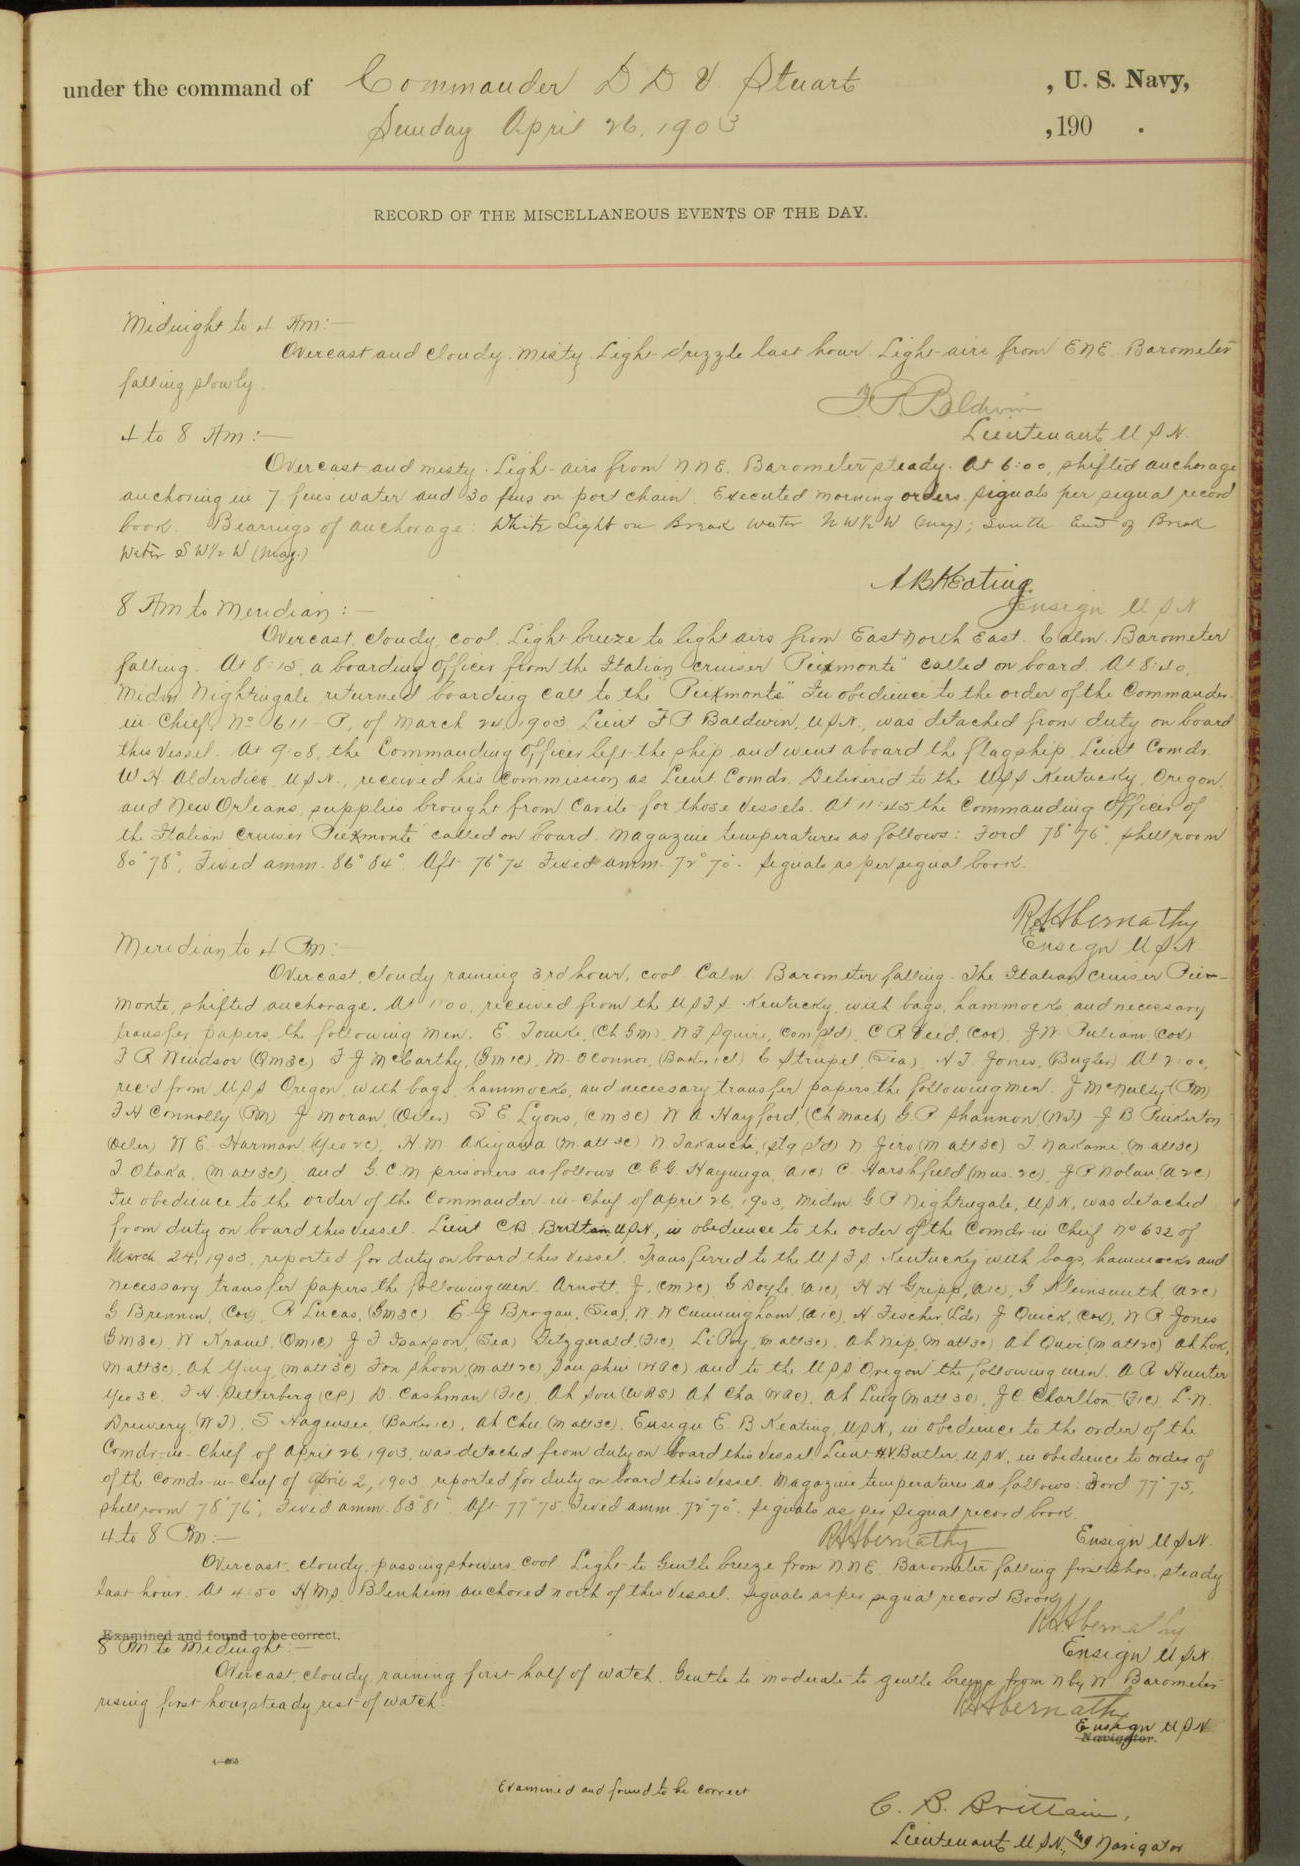 under the command of Commander D D V. Stuart , U. S. Navy,
Sunday April 26, 1903 ,190 .
RECORD OF THE MISCELLANEOUS EVENTS OF THE DAY.
Midnight to 4 Am:—
Overcast and cloudy. Misty. Light drizzle last hour. Light airs from ENE. Barometer
falling slowly.
F. P. Baldwin
Lieutenant U S N.
4 to 8 Am:—
Overcast and misty. Light airs from NNE. Barometer steady. At 6:00, shifted anchorage
anchoring in 7 fms water and 30 fms on port chain. Executed morning orders. Signals per signal record
book. Bearings of anchorage: White Light on Break water N W½ W (mag); South End of Break
Water S W½ W (Mag.)
A B Keating.
Ensign U S N
8 Am to Meridian:—
Overcast, cloudy, cool. Light breeze to light airs from East North East. Calm. Barometer
falling. At 8:15, a boarding officer from the Italian cruiser "Piemonte" called on board. At 8:40,
Midn. Nightingale returned boarding call to the "Piemonte" In obedience to the order of the Commander
in Chief, No 611-P, of March 24, 1903 Lieut F P Baldwin, U.S.N., was detached from duty on board
this vessel. At 9:08, the Commanding Officer left the ship and went aboard the flagship. Lieut Comdr.
W H Alderdice U.S.N., received his commission as Lieut. Comdr. Delivered to the U S S Kentucky, Oregon,
and New Orleans, supplies brought from Cavite for those vessels. At 11:45 the Commanding Officer of
the Italian cruiser "Piemonte" called on board. Magazine temperatures as follows: Ford 78° 76°, Shell room
80° 78°, Fixed amm. 86° 84° Aft 76° 74 Fixed amm. 72° 70°. Signals as per signal book.
R A Abernathy
Ensign U S N
Meridian to 4 Pm:—
Overcast, cloudy raining 3rd hour, cool. Calm. Barometer falling. The Italian cruiser Pie-
monte, shifted anchorage. At 1:00, received from the U S F S Kentucky, with bags, hammocks, and necessary
transfer papers the following men. E (Ch Gm) W F Squire, C R Reed, (Cox) J W. Pulliam (Cox)
F R Windsor (Qm3c) F J McCarthy, (Gm1c), M. OConnor, (Baker 1cl) C Strupel (Sea) H T Jones, (Bugler) At 2:00,
rec'd from U S S Oregon, with bags, hammocks, and necessary transfer papers the following men. J McNulty (PM)
F H Connolly (PM) J Moran, (Oiler) S E Lyons, (Cm3c) W A Hayford, (Ch Mach) G P Shannon (WT) J B Pinkerton
(Oiler) W E. Harman (Yeo 2c), H M Akiyama (Matt 3c) N Takauchi, (Stg Std) N Jiro (Matt 3c) T Nakami (Matt 3c)
T Otaka, (Matt 3cl) and G.C.M prisoners as follows C E G Hayunga, (A1c) C. Harshfield (Mus. 2c) J P Nolan (A2c)
In obedience to the order of the Commander-in-Chief of April 26, 1903, Midn. G P Nightingale, U.S.N, was detached
from duty on board this vessel. Lieut C.B. Brittain U.S.N., in obedience to the order of the Comdr-in Chief No 632 of
March 24, 1903, reported for duty on board this vessel. Transferred to the U S F S Kentucky with bags, hammocks and
necessary transfer papers the following men. Arnott, J. (Cm2c) G Doyle (A1c), H H Gripp, (A1c), G Kleinsmith (A2c)
G Brennin, (Cox) R Lucas, (Gm3c) E J Brogan, (Sea), W W Cunningham, (A1c), H Fischer (Lds) J Quick, (Cox), W R Jones
(Gm3c) W Kraul, (Qm1c) J F Isakson, (Sea) Fitzgerald, (F1c), Li Poy, (Matt3c), Ah Nep, (Matt3c) Ah Quoi (Matt2c) Ah Lok,
(Matt3c), Ah Ying (Matt 3c) Fon Shoon (Matt 2c), (WRC) and to the U S S Oregon the following men. A R Hunter
Yeo 3c, F H. Setterberg (CP) D. Cashman (F1c) Ah Sou (WRS) Ah Cha (WRC), Ah Ling (Matt 3c), J C Charlton (F1c) L. N.
Drewery (WT), S Hagensee (Baker 1c), Ah Chu (Matt3c). Ensign E. B Keating, U.S.N., in obedience to the order of the
Comdr-in-Chief of April 26, 1903, was detached from duty on board this vessel. Lieut H.V. Butler, U.S.N, in obedience to order of
of the Comdr-in-Chief of April 2, 1903, reported for duty on board this vessel. Magazine temperatures as follows: Ford 77° 75,
Shell room 78° 76°, Fixed amm. 83° 81° Aft 77° 75 Fixed amm. 72° 70°. Signals as per signal record book.
4 to 8 Pm:— R A Abernathy Ensign U S N.
Overcast, cloudy, passing showers, cool. Light to Gentle breeze from N N E. Barometer falling first hour, steady
last hour. At 4:50 H M S Blenheim anchored north of this vessel. Signals as per signal record Book.
R A Abernathy
Examined and found to be correct.
Ensign U S N.
8 Pm to Midnight:—
Overcast, cloudy, raining first half of watch. Gentle to moderate to gentle breeze from N by W. Barometer
rising first hour, steady rest of watch.
R A Abernathy
Ensign U S N
Navigator.
Examined and found to be correct
C. B. Brittain,
Lieutenant U S N., Navigator